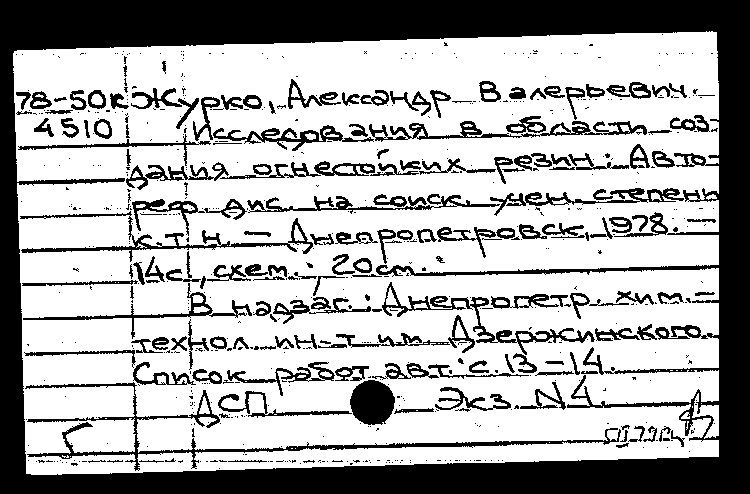 78-50к Журко, Александр Валерьевич.
4510 Исследования в области соз-
дания огнестойких резин: Авто-
реф. дис. на соиск. учен. степени
к.т.н. — Днепропетровск, 1978. —
14с., схем.; 20см.
В надзаг.: Днепропетр. хим.-
технол. ин-т им. Дзержинского.
Список работ авт.: с. 13-14.
ДСП. Экз. N4.